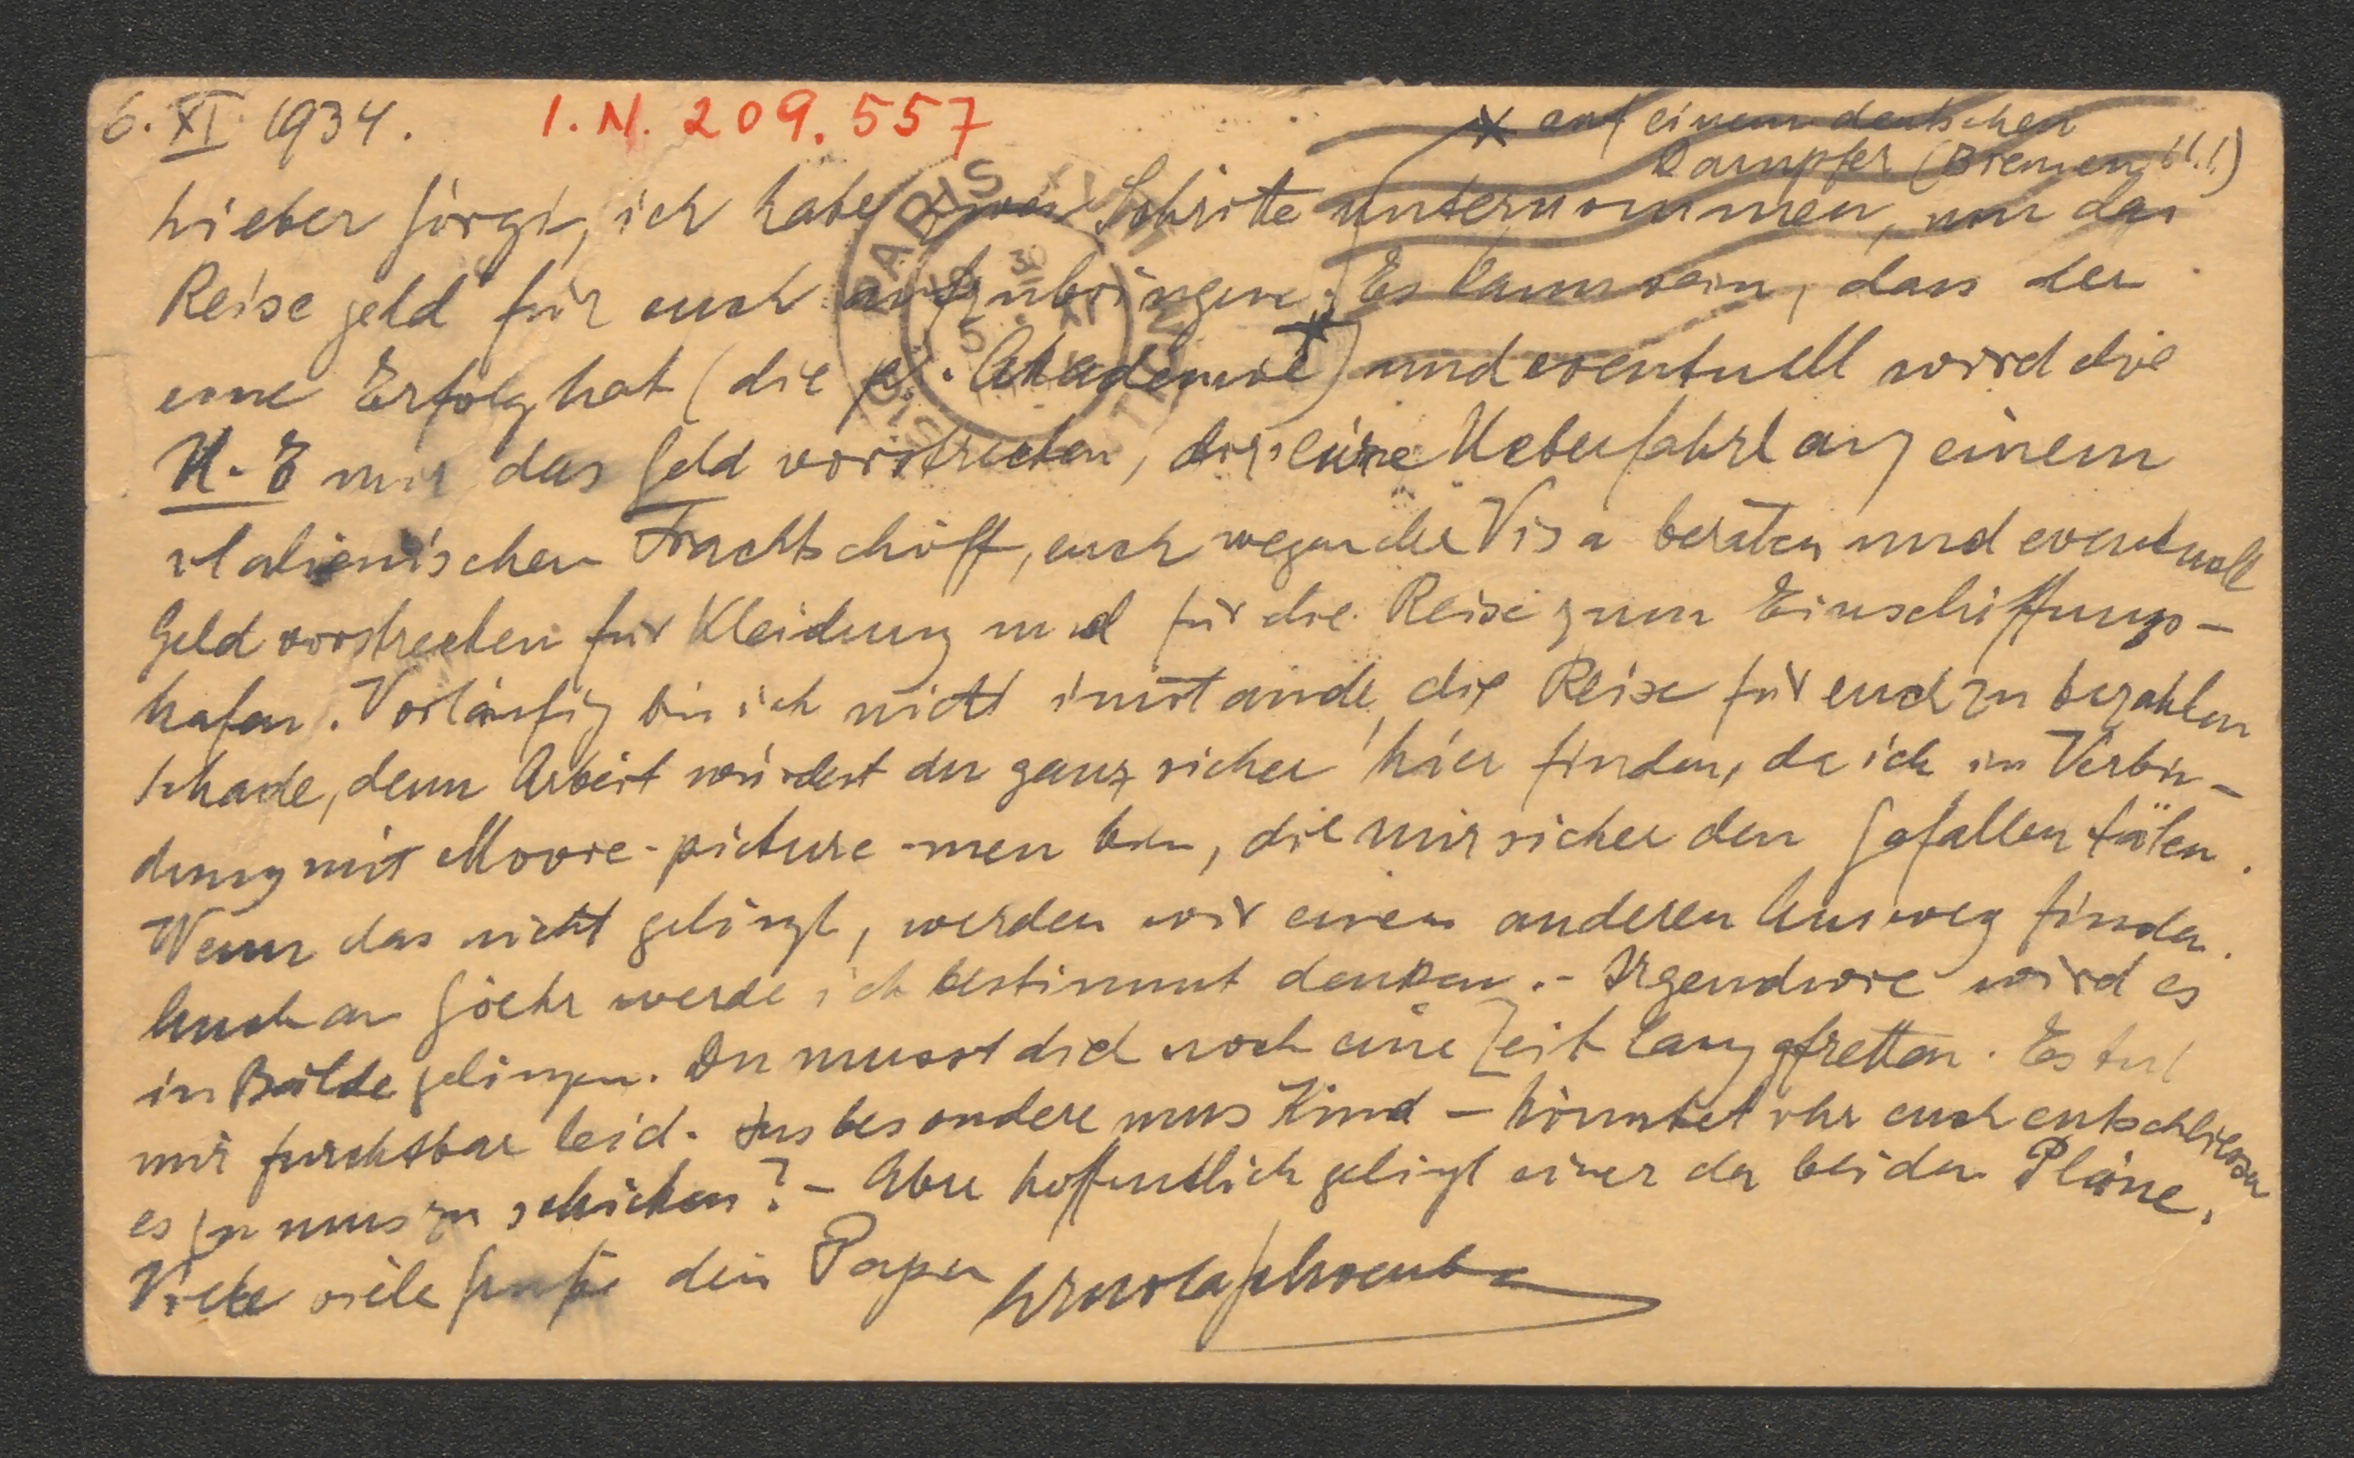 6. XI. 1934. I. N. 209.557
* auf einem deutschen
Dampfer (Bremen!!!)
Lieber Görgi, ich habe zwei Schritte unternommen, um das
Reisegeld für euch aufzubringen. Es kann sein, dass der
eine Erfolg hat (die Akademie*) und eventuell wird die
U.-E mir das Geld vorstrecken, dir eine Ueberfahrt auf einem
italienischen Frachtschiff, euch wegen der Visa beraten und eventuell
Geld vorstrecken für Kleidung und für die Reise zum Einschiffungs-
hafen. Vorläufig bin ich nicht imstande, die Reise für euch zu bezahlen
schade, denn Arbeit würdest du ganz sicher hier finden, da ich in Verbin-
dung mit Movie-picture-men bin, die mir sicher den Gefallen täten.
Wenn das nicht gelingt, werden wir einen anderen Ausweg finden.
Auch an Goehr werde ich bestimmt denken. - Irgendwie wird es
in Bälde gelingen. Du musst dich noch eine Zeit lang gfretten. Es tut
mir furchtbar leid. Insbesondere ums Kind - könntet ihr euch entschliessen
es zu uns zu schicken? - Aber hoffentlich gelingt einer der beiden Pläne.
Viele viele Grüße dein Papa Arnold Schoenberg
PARIS